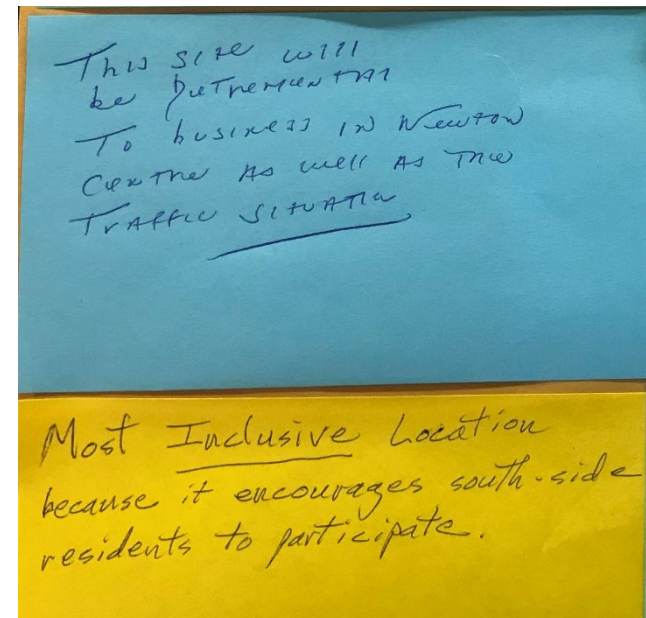 This site will
be Detremental
To business in Newton
Centre As well As The
Traffic Situation
Most Inclusive Location
because it encourages south-side
residents to participate.